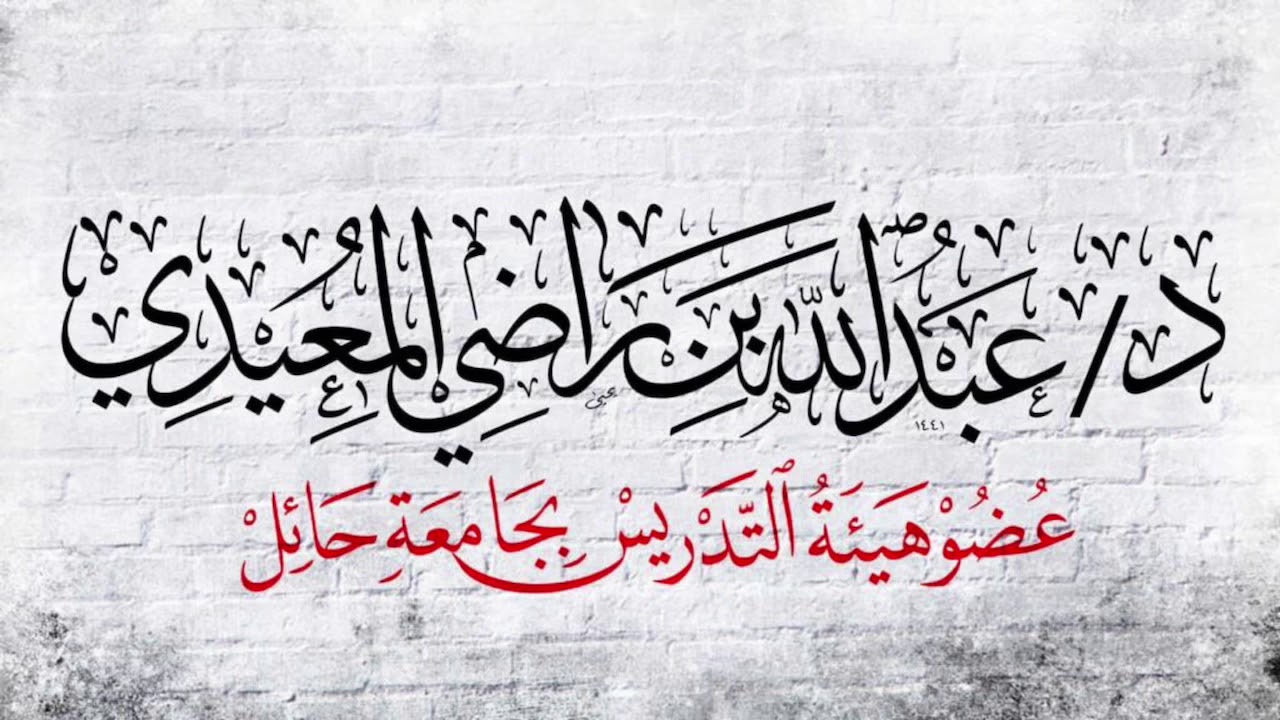 د/ عَبْدُ اللّٰه بْنِ رَاضِي المُعَيْدِي
يحيى
١٤٤١
عُضُوْ هَيْئَةُ التَّدْرِيسْ بِجَامِعَةِ حَائِلْ